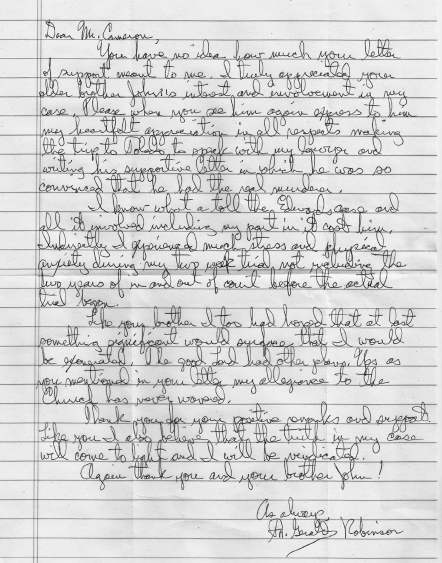 Dear Mr. Cameron,
You have no idea how much your letter
of support meant to me. I truly appreciated your
older brother John's interest and involvement in my
case. Please when you see him again express to him
my heartfelt appreciation in all respects making
the trip to Toledo to speak with my lawyer and
writing his supportive letter in which he was so
convinced that he had the real murderer.
I know what a toll the Edwards case and
all it involved including my part in it cost him.
I experienced much stress and physical
anxiety during my two week trial not including the
two years of in and out of court before the actual
trial began.
Like your brother I too had hoped that at last
something significant would surface that I would
be exonerated. The good Lord had other plans. Yes as
you mentioned in your letter my allegiance to the
Church has never waned.
Thank you for your positive remarks and support.
Like you I also believe that the truth in my case
will come to light and I will be vindicated.
Again thank you and your brother John!
As always,
Fr. Gerald Robinson